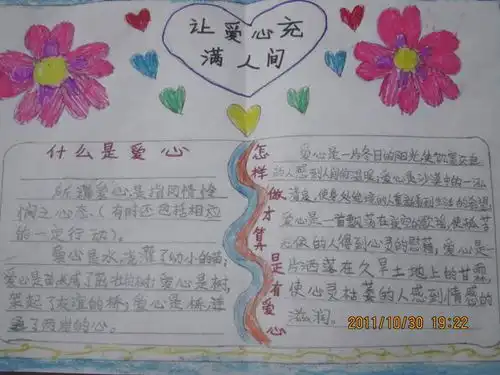 让爱心充
满人间
什么是爱心
所谓爱心是指同情怜
悯之心态.(有时还包括相应
的一定行动)。
爱心是水,浇灌了幼小的苗;
爱心是苗,长成了茁壮的树;爱心是树,
架起了友谊的桥;爱心是桥,连
通了两岸的心。
怎样做才算是有爱心
爱心是一片冬日的阳光,使饥寒交迫
的人感到人间的温暖;爱心是沙漠中的一泓
清泉,使身处绝境的人重新看到生活的希望;
爱心是一首飘荡在夜空的歌谣,使孤苦
无依的人得到心灵的慰藉,爱心是一
片洒落在久旱土地上的甘霖,
使心灵枯萎的人感到情感的
滋润。
2011/10/30 19:22